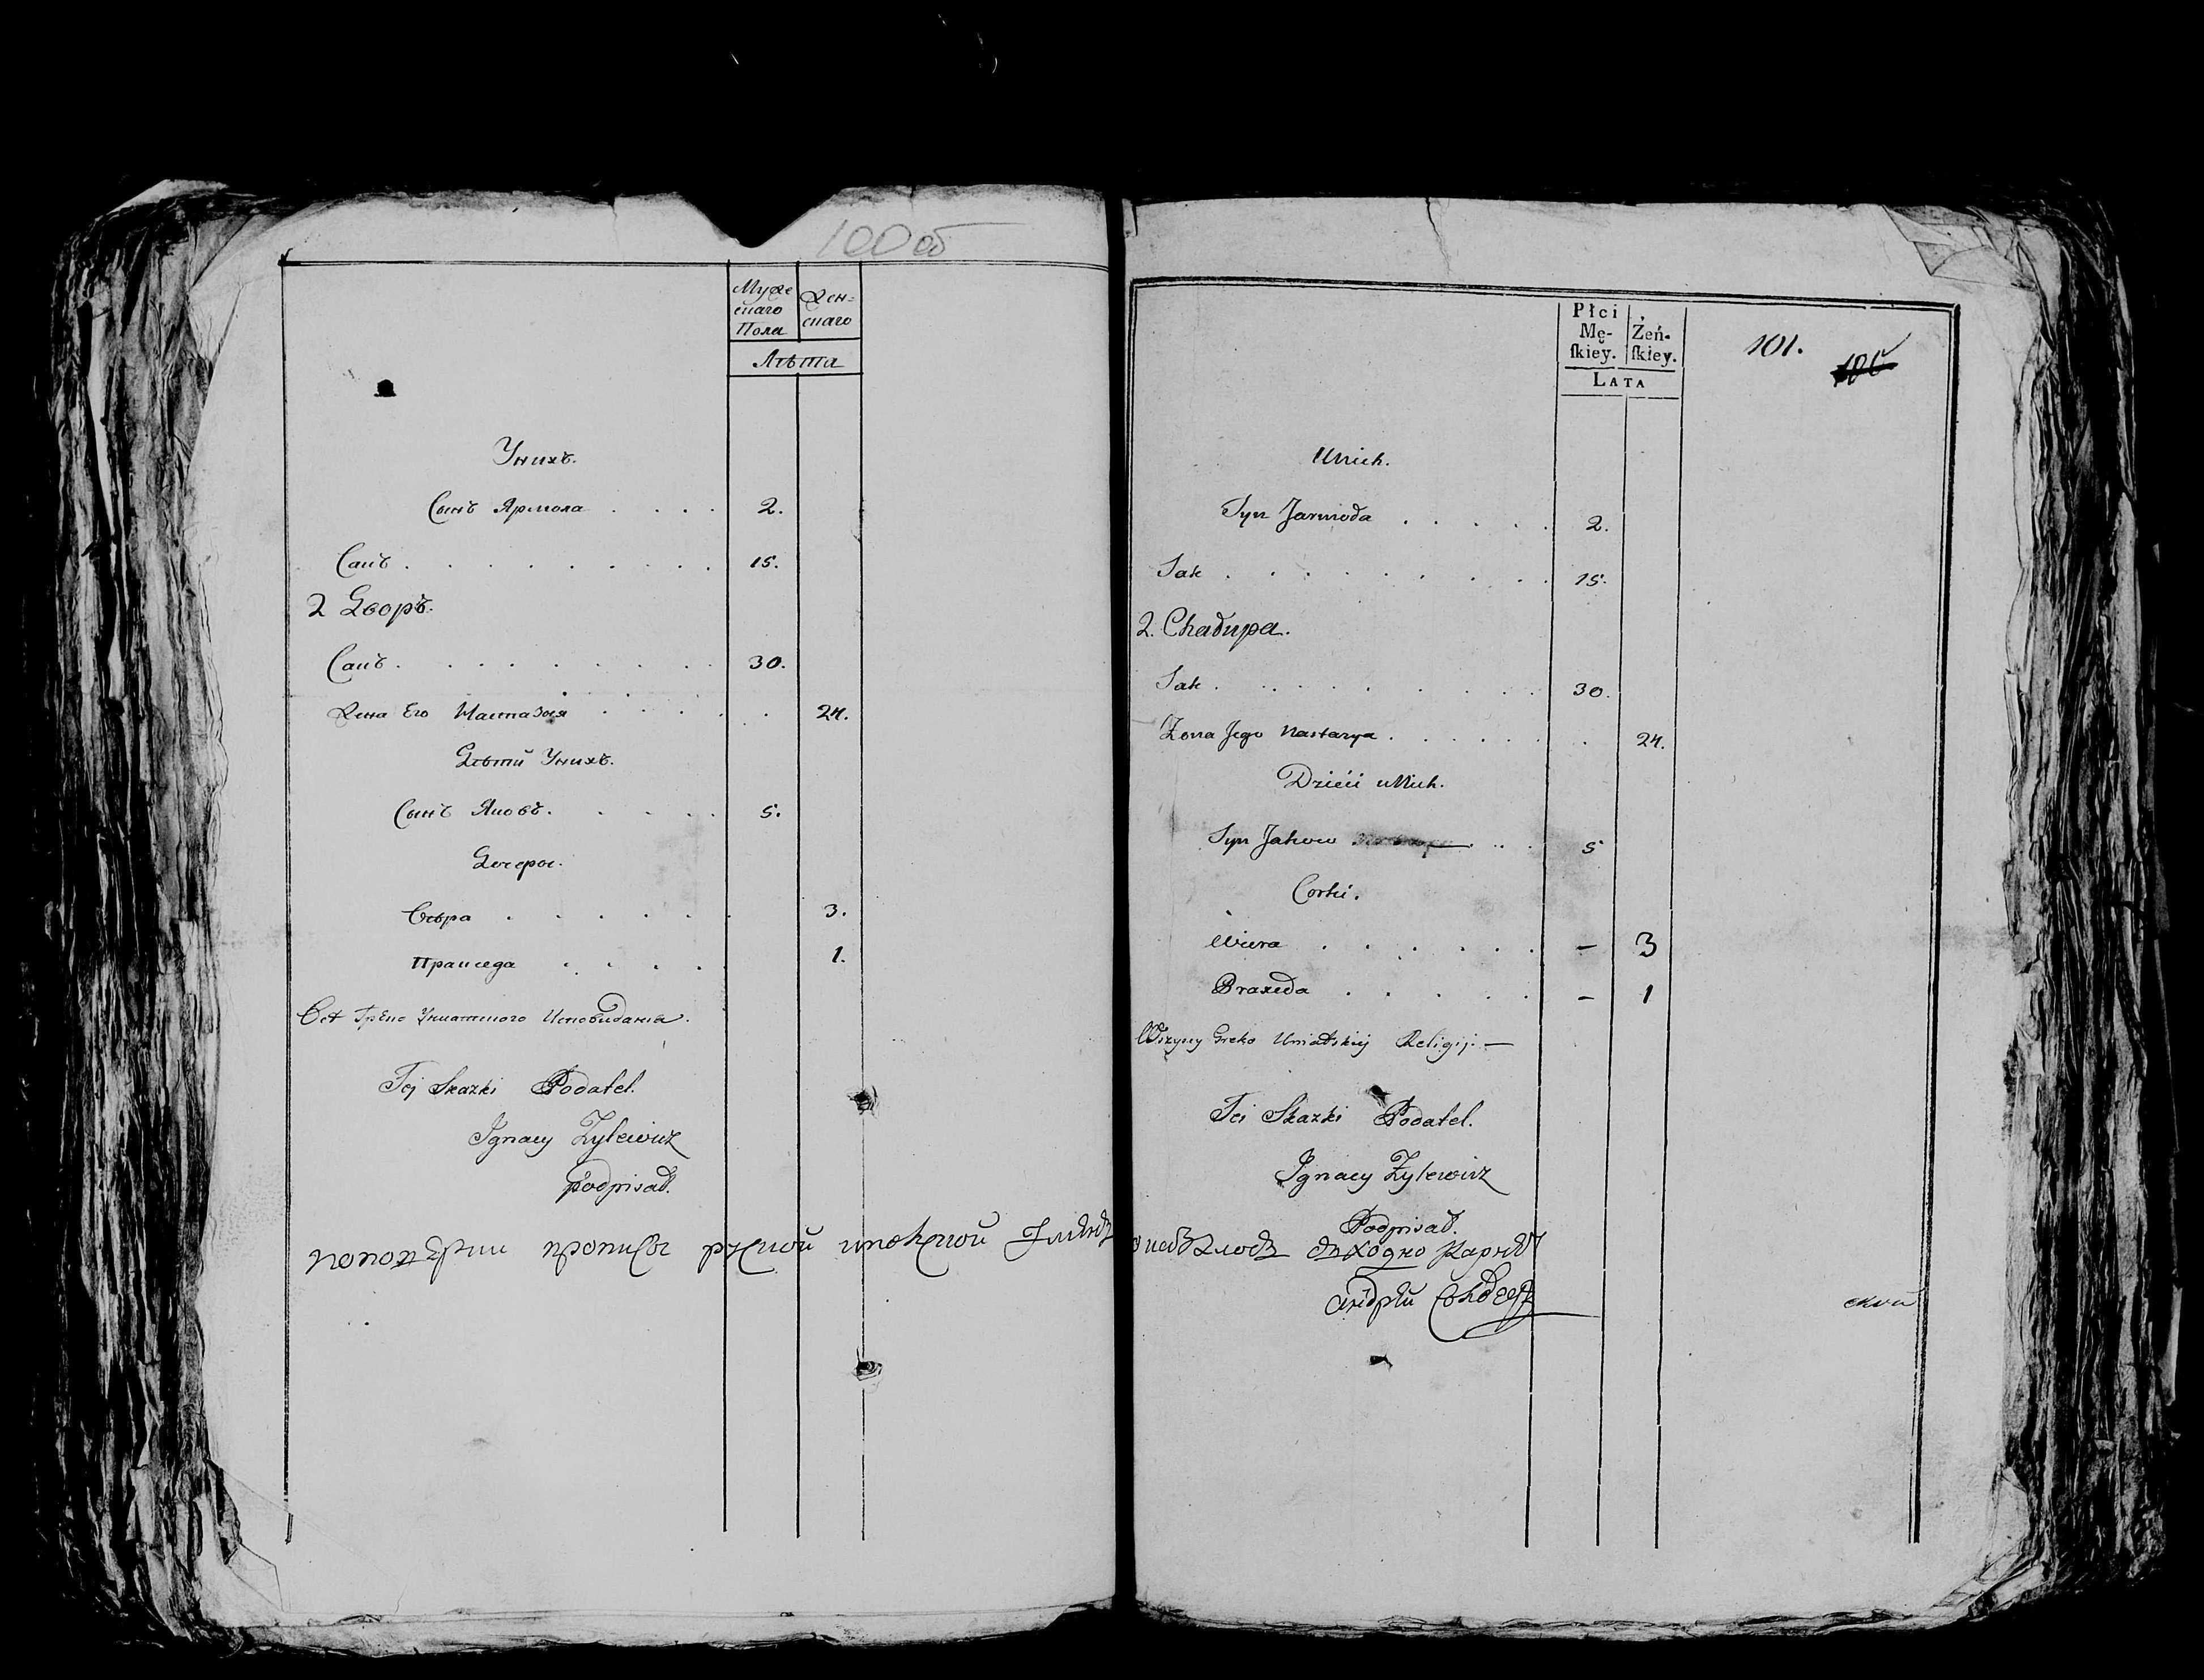 100 об
Муже
скаго
Пола
Жен=
скаго
Лѣта
Унихъ.
Сынъ Ярмола . . . . 2.
Сакъ . . . . . . . . . 15.
2 Дворъ.
Сакъ . . . . . . . . . 30.
Жена Его Настазыя . . . . . 24.
Дѣти Унихъ.
Сынъ Яковъ. . . . . 5.
Дочеры.
Вѣра . . . . . . 3.
Пракседа . . . . 1.
Всѣ Греко Униатского Исповиданиа.
Tej Skazki Podatel.
Ignacy Zylewicz
podpisał.
прописы руской
Płci
Mę-
ſkiey.
Żeń-
ſkiey.
Lata
101.
Unich.
Syn Jarmoła . . . . . 2.
Sak . . . . . . . . . 15.
2. Chałupa.
Sak . . . . . . . . . 30.
Zona Jego Nastazya . . . . . . . 24.
Dzieći uNich.
Syn Jakow . . . 5
Corki.
Wiera . . . . . . – 3
Praxeda . . . . . – 1
Wszyscy Greko Uniatskiej Religij. —
Tei Skazki Podatel.
Ignacy Zylewicz
Podpisał.
сходно
Андрѣй
ской